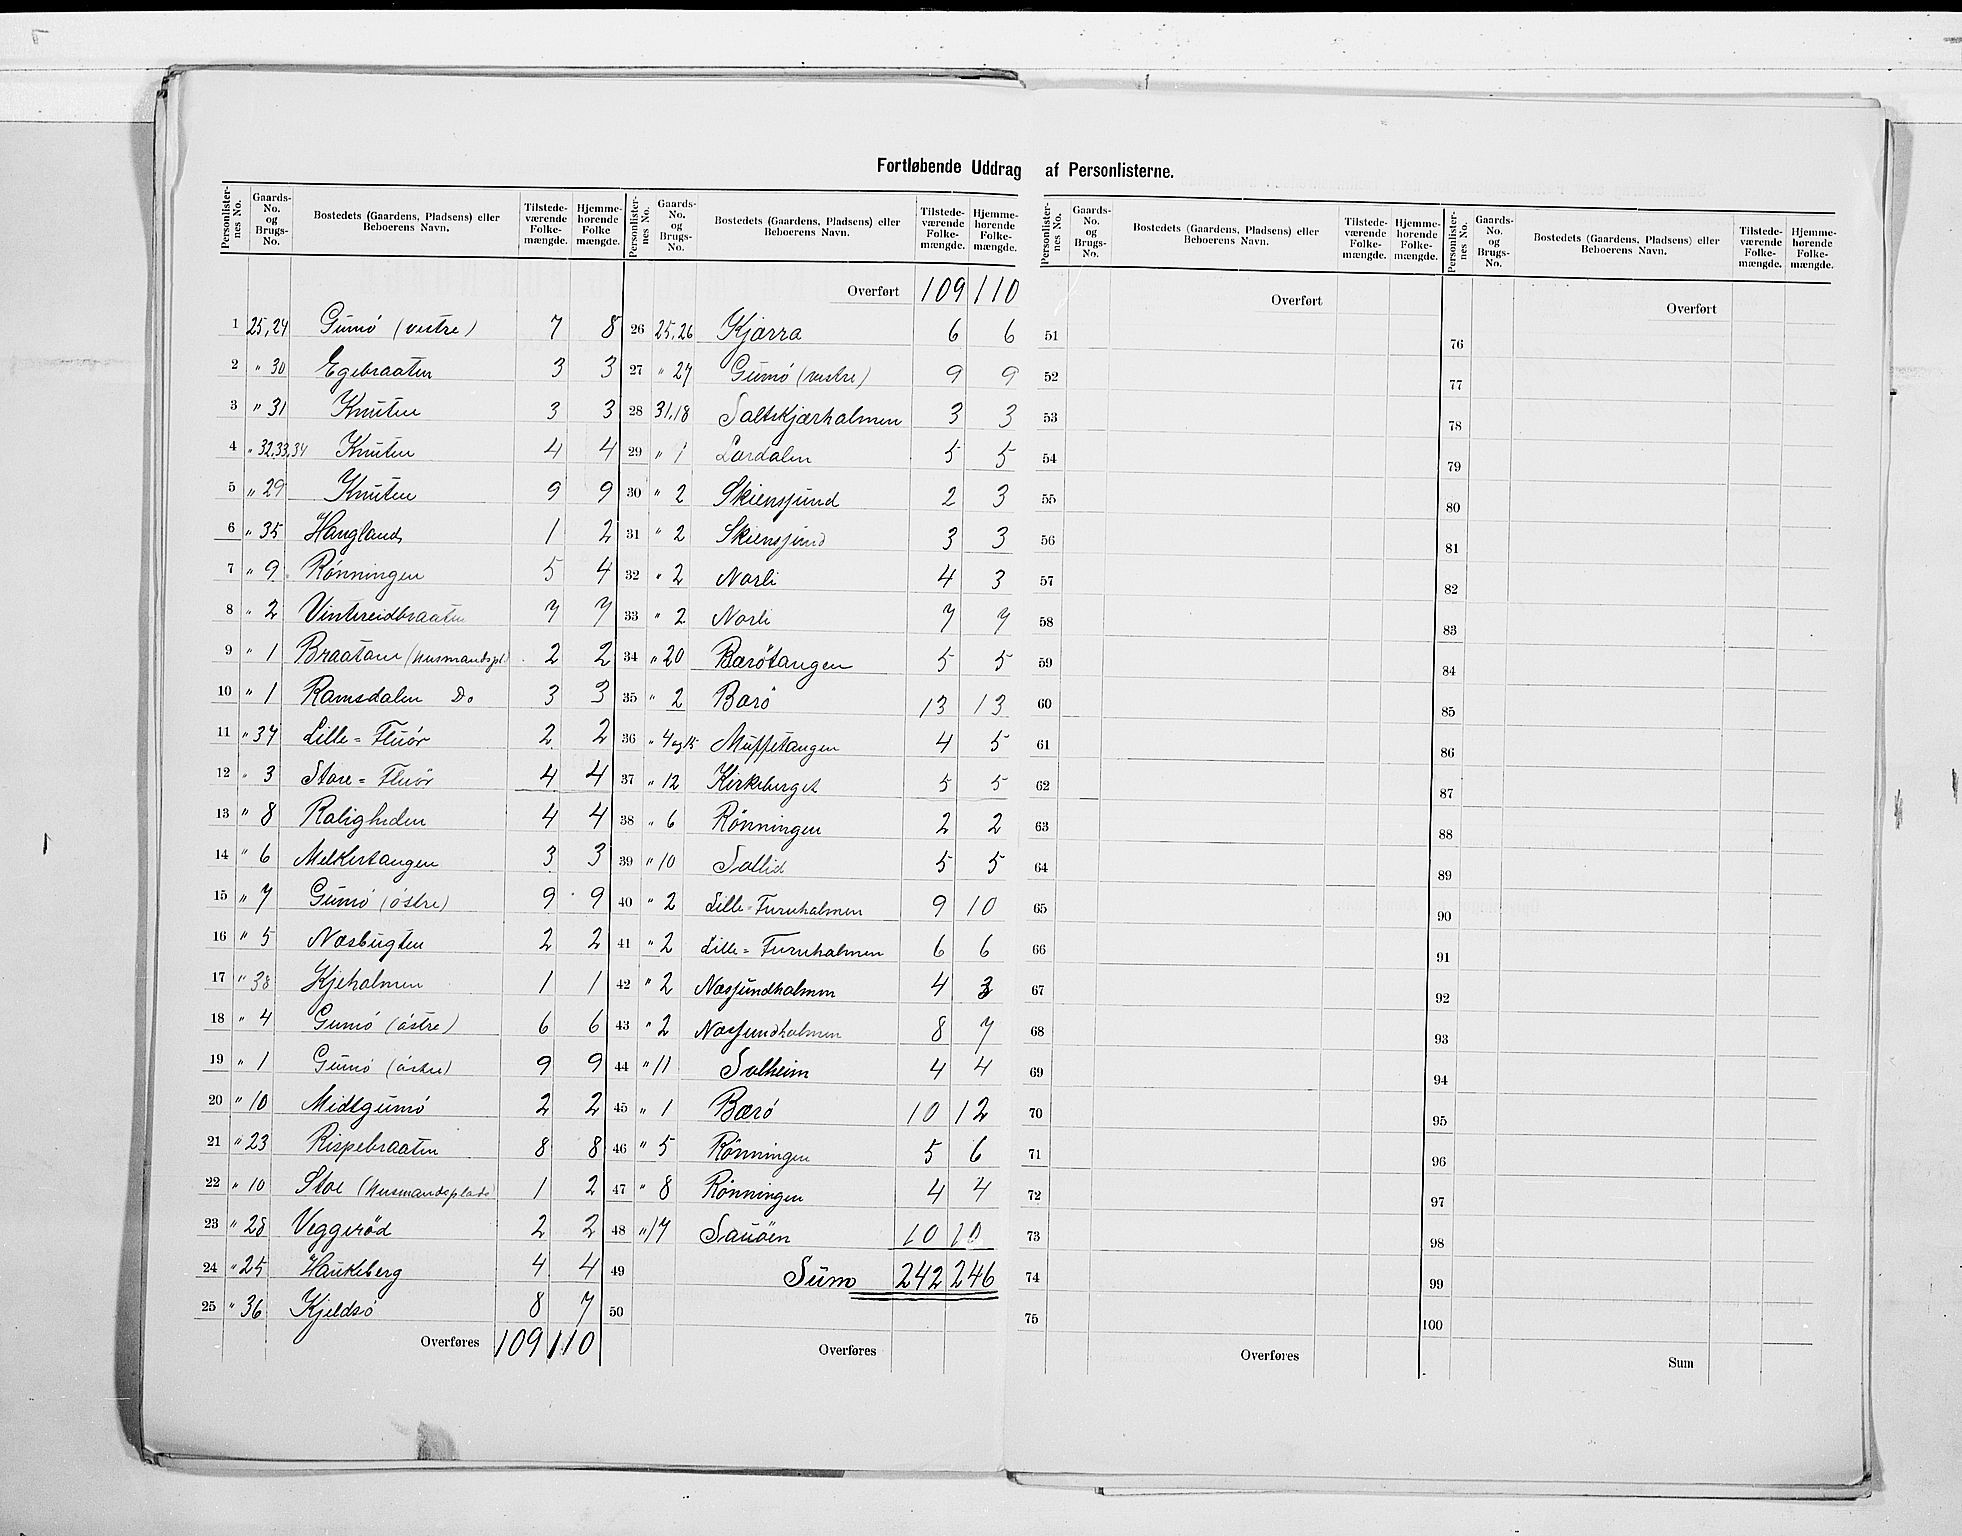 Fortløbende Uddrag af Personlisterne.
Personlisternes No. | Gaards-No. og Brugs-No. | Bostedets (Gaardens, Pladsens) eller Beboerens Navn. | Tilstedeværende Folkemængde. | Hjemmehørende Folkemængde.
1 25,24 Gumö (vestre) 7 8
2 " 30 Egebraaten 3 3
3 " 31 Knuten 3 3
4 " 32,33,34 Knuten 4 4
5 " 29 Knuten 9 9
6 " 35 Haugland 1 2
7 " 9 Rönningen 5 4
8 " 2 Vintereidbraaten 7 7
9 " 1 Braatane (Husmandspl.) 2 2
10 " 1 Ramsdalen Do 3 3
11 " 37 Lille=Fluör 2 2
12 " 3 Store=Fluör 4 4
13 " 8 Roligheden 4 4
14 " 6 Melkertangen 3 3
15 " 7 Gumö (östre) 9 9
16 " 5 Næsbugten 2 2
17 " 38 Kjeholmen 1 1
18 " 4 Gumö (östre) 6 6
19 " 1 Gumö (östre) 9 9
20 " 10 Midtgumö 2 2
21 " 23 Rispebraaten 8 8
22 " 10 Stoe (Husmandsplads) 1 2
23 " 28 Veggeröd 2 2
24 " 25 Haukeberg 4 4
25 " 36 Kjeldsö 8 7
Overføres 109 110
Personlisternes No. | Gaards-No. og Brugs-No. | Bostedets (Gaardens, Pladsens) eller Beboerens Navn. | Tilstedeværende Folkemængde. | Hjemmehørende Folkemængde.
Overført 109 110
26 25,26 Kjærra 6 6
27 " 27 Gumö (vestre) 9 9
28 31,18 Saltskjærholmen 3 3
29 " 1 Lærdalen 5 5
30 " 2 Skienssund 2 3
31 " 2 Skienssund 3 3
32 " 2 Norli 4 3
33 " 2 Norli 7 7
34 " 20 Barötangen 5 5
35 " 2 Barö 13 13
36 " 4 og 15 Muffetangen 4 5
37 " 12 Kirkeberget 5 5
38 " 6 Rönningen 2 2
39 " 10 Sollid 5 5
40 " 2 Lille=Furuholmen 9 10
41 " 2 Lille=Furuholmen 6 6
42 " 2 Næssundholmen 4 3
43 " 2 Næssundholmen 8 7
44 " 11 Solheim 4 4
45 " 1 Barö 10 12
46 " 5 Rönningen 5 6
47 " 8 Rönningen 4 4
48 " 17 Sauöen 10 10
49 Sum 242 246
50
Overføres
Personlisternes No. | Gaards-No. og Brugs-No. | Bostedets (Gaardens, Pladsens) eller Beboerens Navn. | Tilstedeværende Folkemængde. | Hjemmehørende Folkemængde.
Overført
51
52
53
54
55
56
57
58
59
60
61
62
63
64
65
66
67
68
69
70
71
72
73
74
75
Overføres
Personlisternes No. | Gaards-No. og Brugs-No. | Bostedets (Gaardens, Pladsens) eller Beboerens Navn. | Tilstedeværende Folkemængde. | Hjemmehørende Folkemængde.
Overført
76
77
78
79
80
81
82
83
84
85
86
87
88
89
90
91
92
93
94
95
96
97
98
99
100
Sum